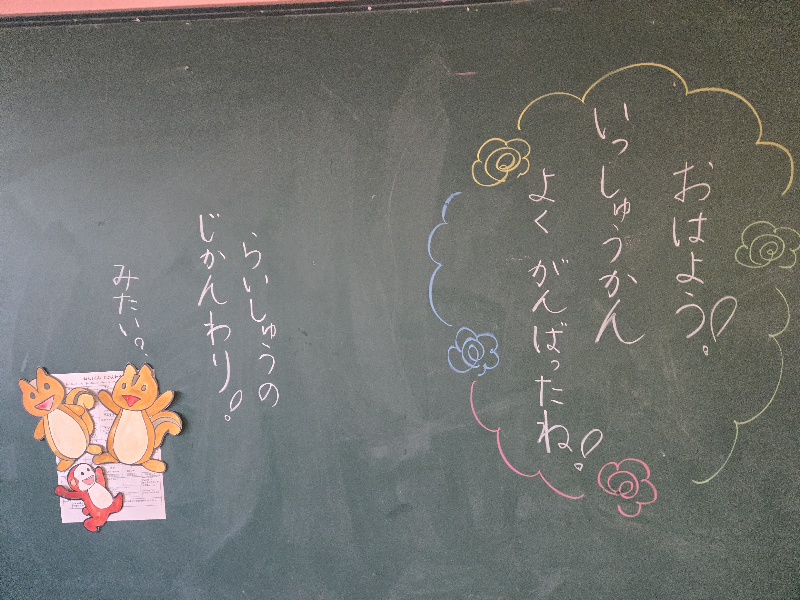 おはよう!
いっしゅうかん
よく がんばったね!
らいしゅうの
じかんわり!
みたい?